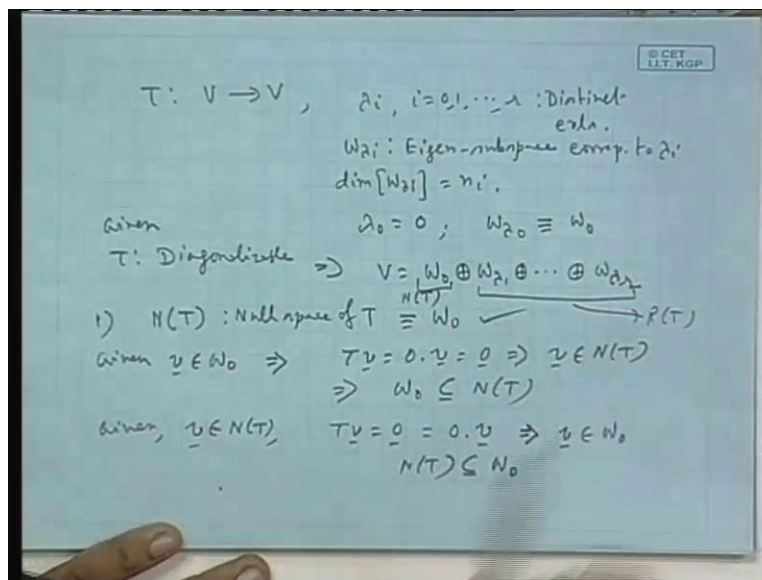 © CET
I.I.T. KGP
T: V → V , λi, i=0,1,...,r : Distinct
evls.
Wλi : Eigen-subspace corresp. to λi
dim[Wλi] = ni.
Given λ0 = 0 ; Wλ0 ≡ W0
T: Diagonalizable ⇒ V = W0 ⊕ Wλ1 ⊕ ... ⊕ Wλr
N(T)
1) N(T) : Null space of T ≡ W0 ✓ → R(T)
Given v ∈ W0 ⇒ Tv = 0.v = 0 ⇒ v ∈ N(T)
⇒ W0 ⊆ N(T)
Given, v ∈ N(T), Tv = 0 = 0.v ⇒ v ∈ W0
N(T) ⊆ W0